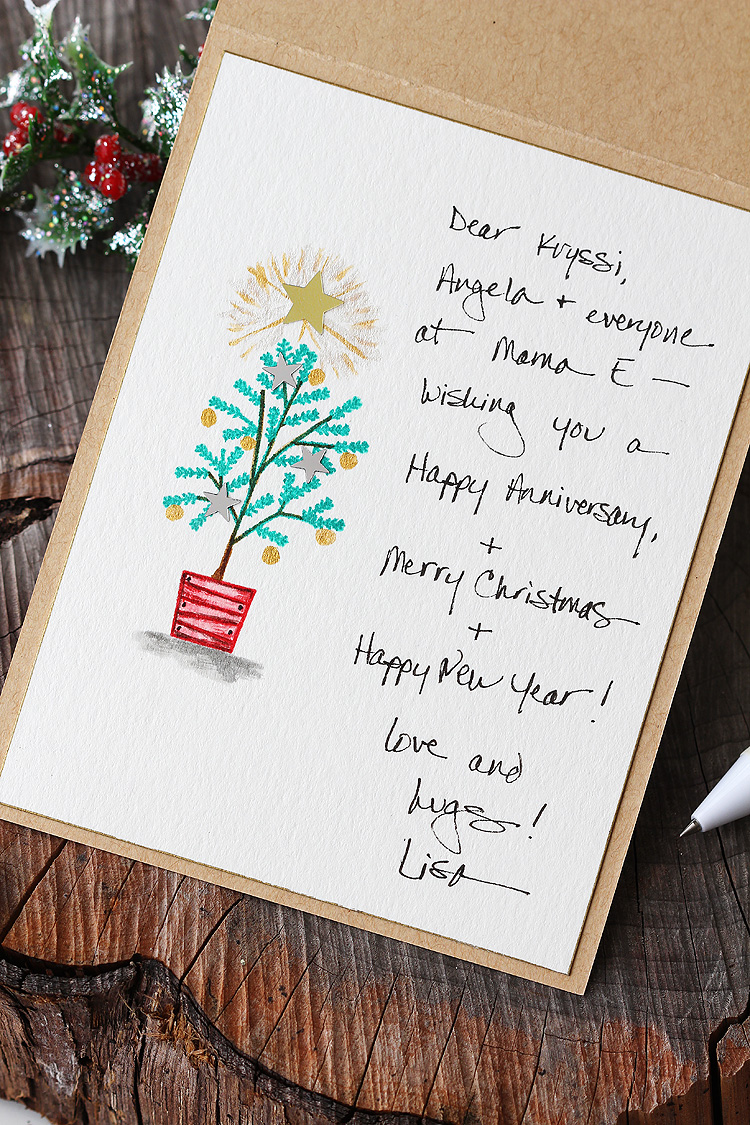 Dear Kryssi,
Angela + everyone
at Mama E —
Wishing you a
Happy Anniversary,
+
Merry Christmas
+
Happy New Year!
love and
hugs!
Lisa